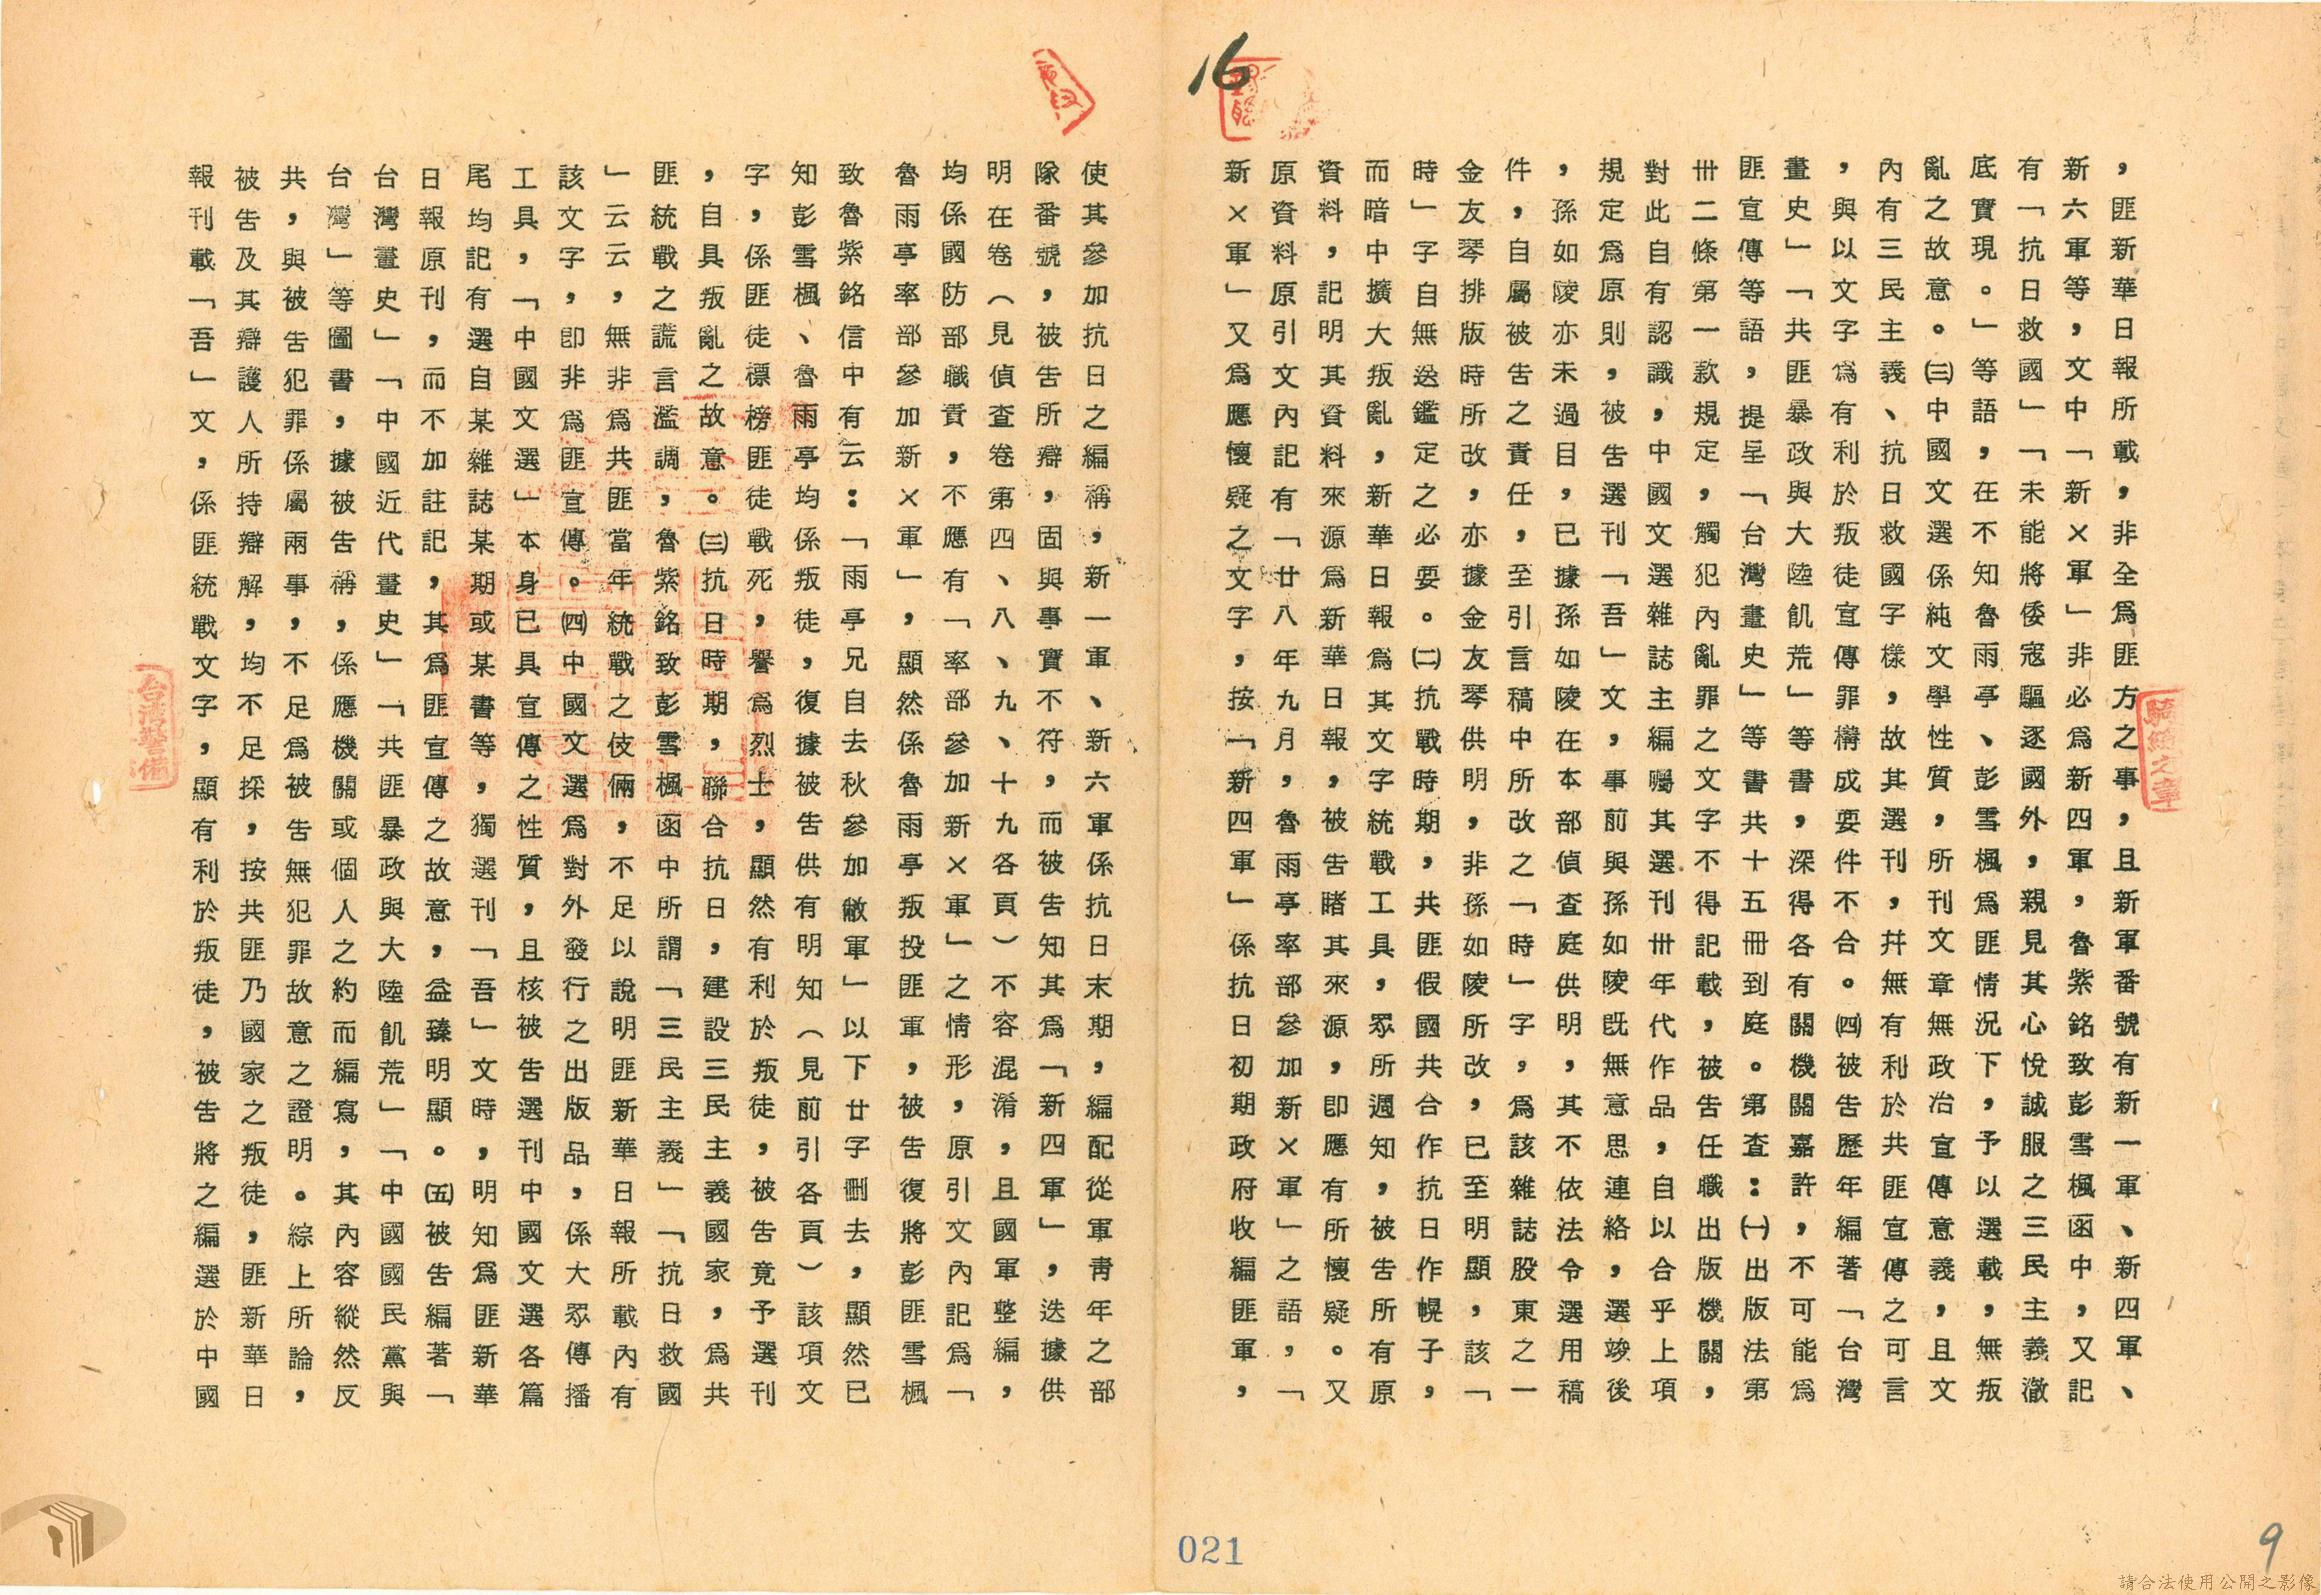 16
，匪新華日報所載，非全為匪方之事，且新軍番號有新一軍、新四軍、
新六軍等，文中「新×軍」非必為新四軍，魯紫銘致彭雪楓函中，又記
有「抗日救國」「未能將倭寇驅逐國外，親見其心悅誠服之三民主義澈
底實現。」等語，在不知魯雨亭、彭雪楓為匪情況下，予以選載，無叛
亂之故意。㈢中國文選係純文學性質，所刊文章無政治宣傳意義，且文
內有三民主義、抗日救國字樣，故其選刊，幷無有利於共匪宣傳之可言
，與以文字為有利於叛徒宣傳罪，構成要件不合。㈣被告歷年編著「台灣
畫史」「共匪暴政與大陸飢荒」等書，深得各有關機關嘉許，不可能為
匪宣傳等語，提呈「台灣畫史」等書共十五冊到庭。第查：㈠出版法第
卅二條第一款規定，觸犯內亂罪之文字不得記載，被告任職出版機關，
對此自有認識，中國文選雜誌主編囑其選刊卅年代作品，自以合乎上項
規定為原則，被告選刊「吾」文，事前與孫如陵既無意思連絡，選竣後
，孫如陵亦未過目，已據孫如陵在本部偵查庭供明，其不依法令選用稿
件，自屬被告之責任，至引言稿中所改之「時」字，為該雜誌股東之一
金友琴排版時所改，亦據金友琴供明，非孫如陵所改，已至明顯，該「
時」字自無送鑑定之必要。㈡抗戰時期，共匪假國共合作抗日作幌子，
而暗中擴大叛亂，新華日報為其文字統戰工具，眾所週知，被告所有原
資料，記明其資料來源為新華日報，被告睹其來源，即應有所懷疑。又
原資料原引文內記有「廿八年九月，魯雨亭率部參加新×軍」之語，「
新×軍」又為應懷疑之文字，按「新四軍」係抗日初期政府收編匪軍，
使其參加抗日之編稱，新一軍、新六軍係抗日末期，編配從軍青年之部
隊番號，被告所辯，固與事實不符，而被告知其為「新四軍」，迭據供
明在卷（見偵查卷第四、八、九、十九各頁）不容混淆，且國軍整編，
均係國防部職責，不應有「率部參加新×軍」之情形，原引文內記為「
魯雨亭率部參加新×軍」，顯然係魯雨亭叛投匪軍，被告復將彭匪雪楓
致魯紫銘信中有云：「雨亭兄自去秋參加敝軍」以下廿字刪去，顯然已
知彭雪楓、魯雨亭均係叛徒，復據被告供有明知（見前引各頁）該項文
字，係匪徒標榜匪徒戰死，譽為烈士，顯然有利於叛徒，被告竟予選刊
，自具叛亂之故意。㈢抗日時期，聯合抗日，建設三民主義國家，為共
匪統戰之謊言濫調，魯紫銘致彭雪楓函中所謂「三民主義」「抗日救國
」云云，無非為共匪當年統戰之伎倆，不足以說明匪新華日報所載內有
該文字，即非為匪宣傳。㈣中國文選為對外發行之出版品，係大眾傳播
工具，「中國文選」本身已具宣傳之性質，且核被告選刊中國文選各篇
尾均記有選自某雜誌某期或某書等，獨選刊「吾」文時，明知為匪新華
日報原刊，而不加註記，其為匪宣傳之故意，益臻明顯。㈤被告編著「
台灣畫史」「中國近代畫史」「共匪暴政與大陸飢荒」「中國國民黨與
台灣」等圖書，據被告稱，係應機關或個人之約而編寫，其內容縱然反
共，與被告犯罪係屬兩事，不足為被告無犯罪故意之證明。綜上所論，
被告及其辯護人所持辯解，均不足採，按共匪乃國家之叛徒，匪新華日
報刊載「吾」文，係匪統戰文字，顯有利於叛徒，被告將之編選於中國
騎縫之章
台灣警備
021
9
請合法使用公開之影像